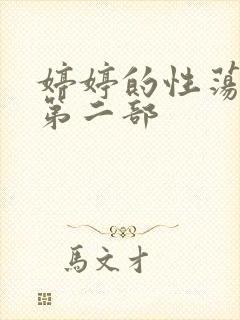 婷婷的性蕩
第二部
馬文才